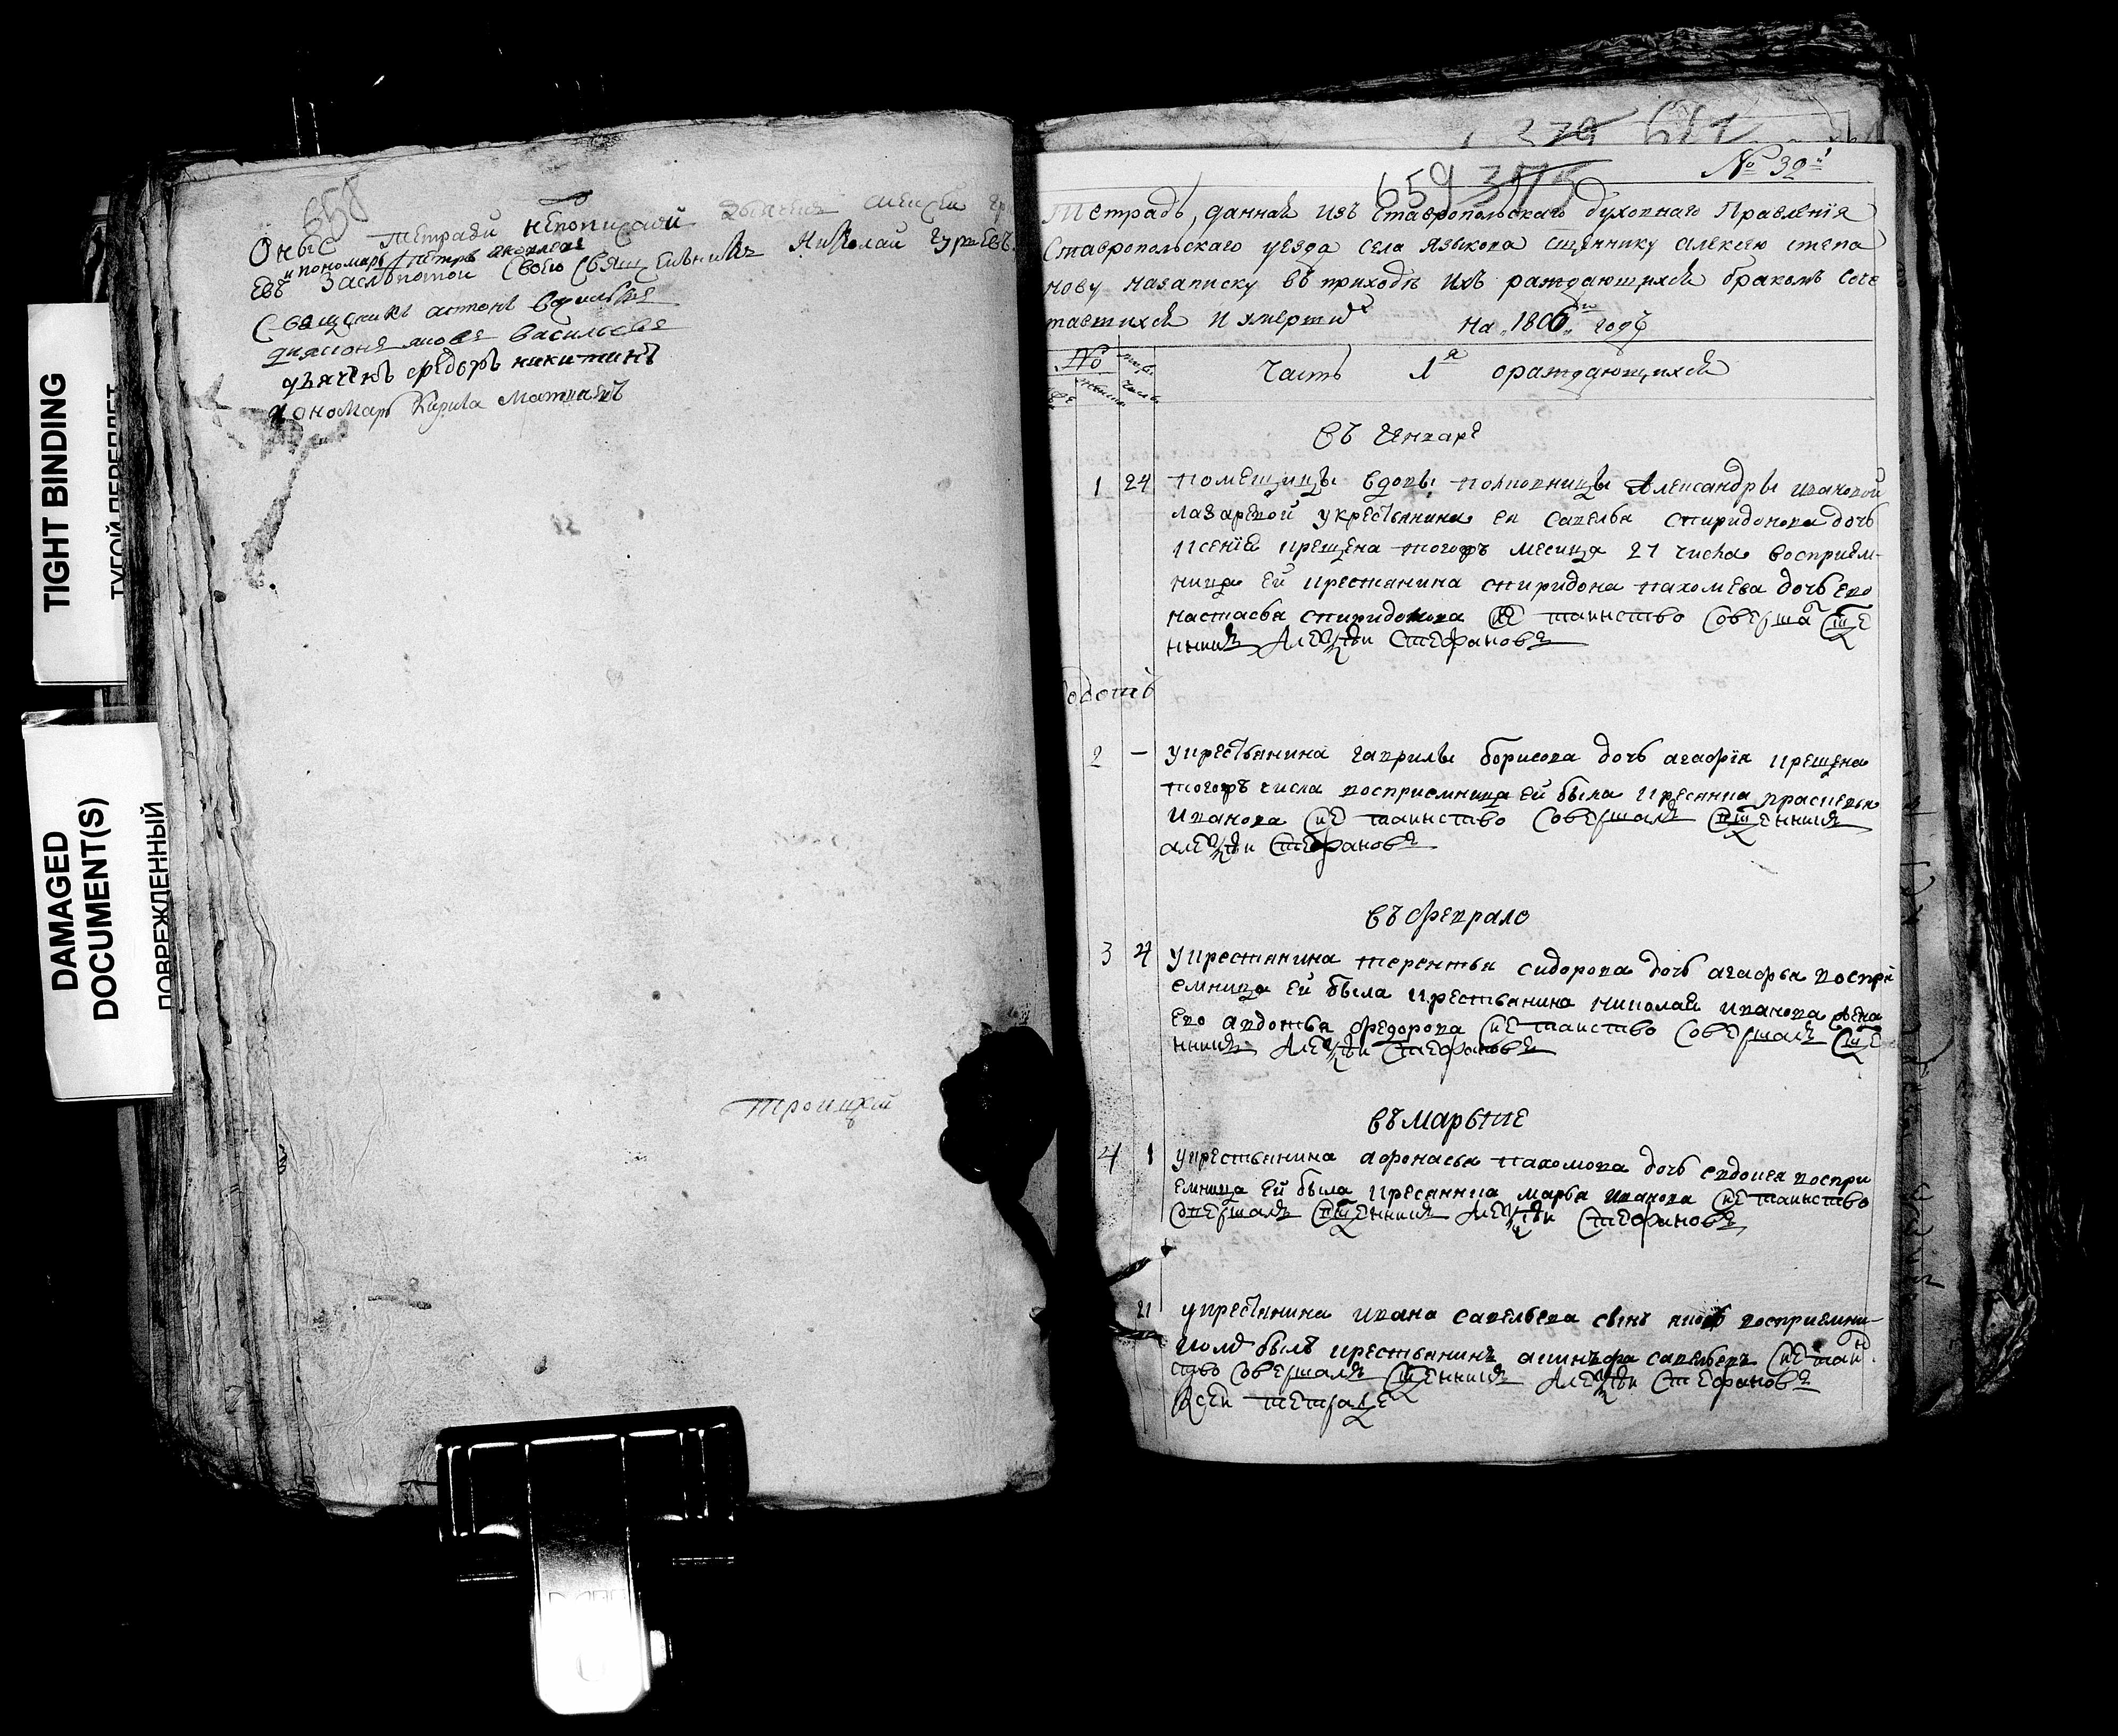 TIGHT BINDING
ТУГОЙ ПЕРЕПЛЕТ
DAMAGED
DOCUMENT(S)
ПОВРЕЖДЕННЫЙ
658
Оныс тетради неподписалй
и пономарь петръ яковлевъ
евъ Заслѣпотои Своею Священникъ Николай Гурьевъ
Священникъ антонъ васильевъ
дияконъ яковъ васильевъ
дьячекъ федоръ никитинъ
пономарь Кирила Матвѣевъ
Троицкой
659 375
№ 32й
Тетрадь, данная изъ Ставропольскаго духовнаго Правленія
Ставропольскаго уезда села Языкова сщеннику алексею степа
нову назаписку въ приходѣ ихъ раждающихся бракомъ соче
тавшихся И умершихъ на 1806й годъ
№
Часть 1я ораждающихся
въ Генваре
1 24 помещицы вдовы полковницы Александры ивановой
лазаревой укрестьянина ея Савелья Спиридонова дочь
ксенія крещена тогожъ месяца 27 числа восприем-
ница ей крестянина спиридона пахомева дочь ево
настасья спиридонова сие таинство Совершалъ Сще
нникъ Алексѣи Стефановъ
2 – укрестьянина гаврилы борисова дочь агафія крещена
тогожъ числа восприемница ей была кресянка прасковья
Иванова сие таинство Совершалъ Сщенникъ
алексѣи Стефановъ
въ феврале
3 4 укрестянина терентья сидорова дочь агафья воспрі
емница ей была крестьянина николая иванова жена
ево авдотья федорова сие таинство Совершалъ Сще
нникъ Алексѣи Стефановъ
въ марьте
4 1 укрестьянина афонасья пахомова дочь евдокея воспри
емница ей была кресянка марья иванова сие таинство
Совершалъ Сщенникъ Алексѣи Стефановъ
21 укрестьянина ивана савельева сынъ яковъ восприемни-
комъ былъ крестьянинъ акинъфа савельевъ сие таин
ство Совершалъ Сщенникъ Алексѣи Стефановъ